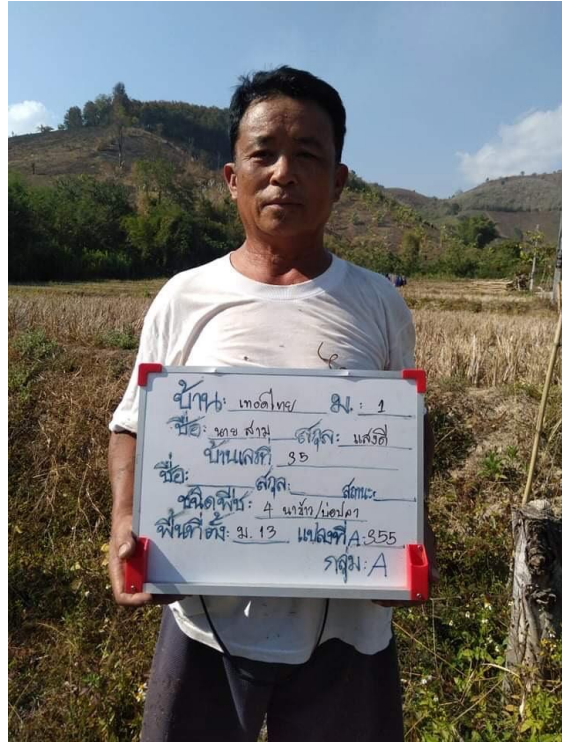 บ้าน: เทอดไทย ม.: 1
ชื่อ: นาย สาม สกุล: แสงดี
บ้านเลขที่ 35
ชื่อ: สกุล: สถานะ:
ชนิดพืช: 4 นาข้าว/บ่อปลา
พื้นที่ตั้ง: ม. 13 แปลงที่ A:355
กลุ่ม: A